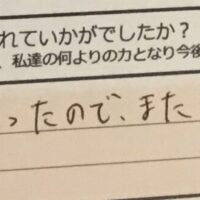 れていかがでしたか？
、私達の何よりの力となり今後
ったので、また